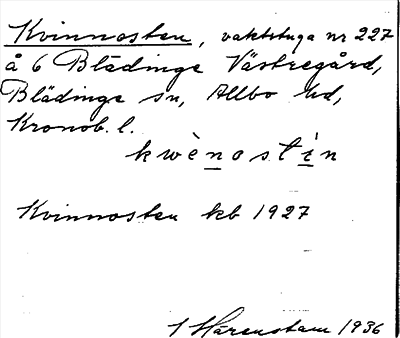 Kvinnosten, vaktstuga nr 227
å 6 Blädinge Västregård,
Blädinge sn, Allbo hd,
Kronob. l.
kwènostin
Kvinnosten kb 1927
Härenstam 1936